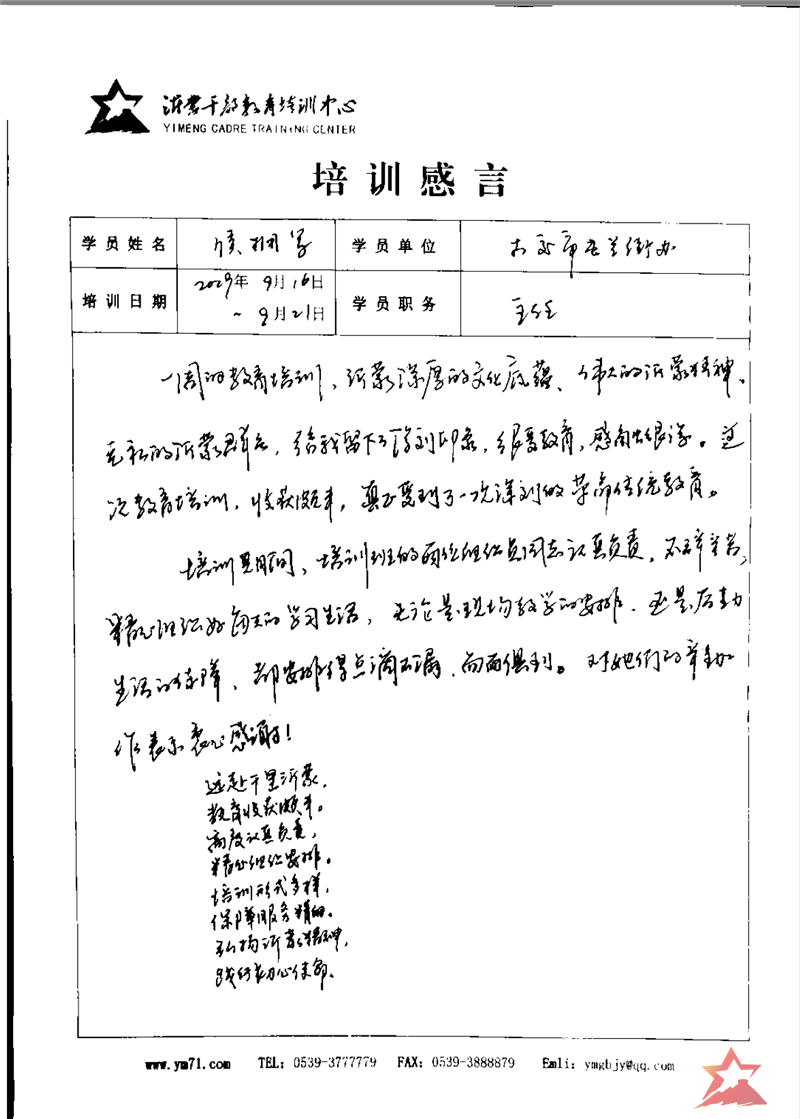 沂蒙干部教育培训中心
YIMENG CADRE TRAINING CENTER
培训感言
学员姓名 学员单位 太原市 街办
培训日期 2029年9月16日 ~ 9月21日 学员职务 主任
一周的教育培训,沂蒙深厚的文化底蕴、伟大的沂蒙精神、
无私的沂蒙群众,给我留下了深刻印象,很受教育,感触很深。这
次教育培训,收获颇丰,真正受到了一次深刻的革命传统教育。
培训班期间,培训班的两位组织员同志认真负责,不辞辛苦,
精心组织好每天的学习生活,无论是现场教学的安排,还是后勤
生活的保障,都安排得点滴不漏,面面俱到。对她们的辛勤工
作表示衷心感谢!
远赴千里沂蒙,
教育收获颇丰。
高度认真负责,
精心组织安排。
培训形式多样,
保障服务精细。
弘扬沂蒙精神,
践行初心使命。
www.ym71.com TEL: 0539-3777779 FAX: 0539-3888879 Emli: ymgbjy@qq.com